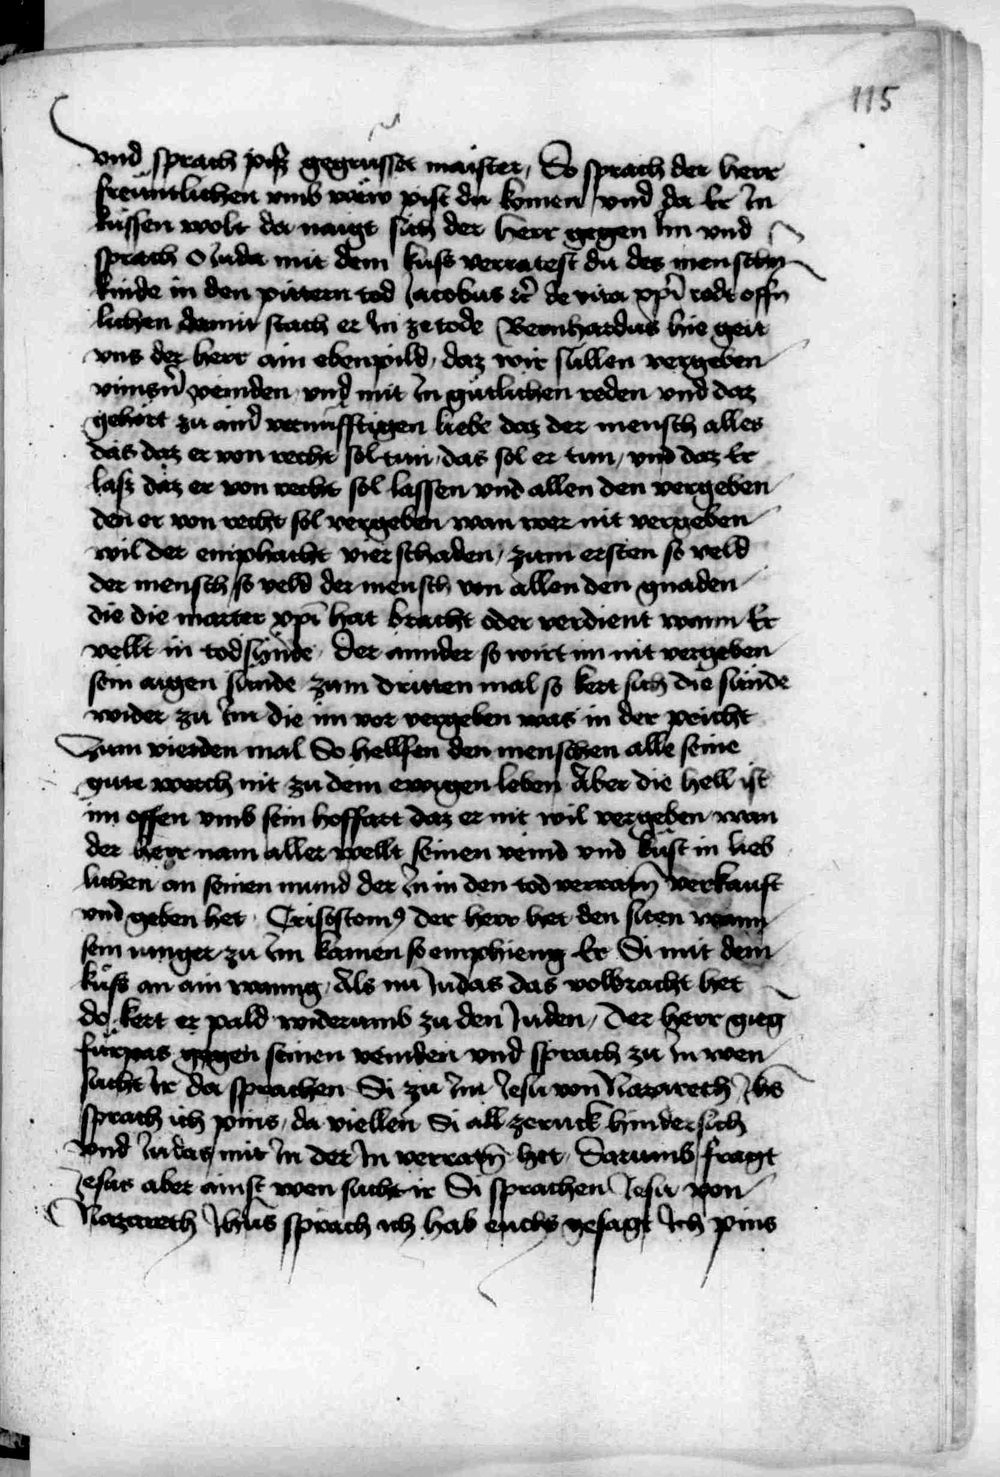 115
vnd sprach piſʒ gegrüsset maister, So sprach der herr
freuͤntlichen vmb wew pist du komen vnd da Er In
küssen wolt da naigt sich der herr gegen Im vnd
sprach O Juda mit dem kuss verratest du des menschen
kinde in den pittern tod Jacobus ꝛc̄ de vita xp̄i redt offn
lichen damit stach er In ze tode Bernhardus hie geit
vns der herr ain ebenpild, daz wir süllen vergeben
vnnsn̄ veinden, vnd mit In gütlichen reden vnd daz
gehört zu aind vernüfftigen liebe daz der mensch alles
das daz er von recht sol tun, das sol er tun, vnd daz Er
lasʒ daz er von recht sol lassen vnd allen den vergeben
den er von recht sol vergeben wan wer nit vergeben
wil der emphacht vier schaden, zum ersten so veld
der mensch so veld der mensch von allen den gnaden
die die marter xp̄i hat bracht oder verdient wann Er
vellt in todsünde, Der annder so wirt im nit vergeben
sein aigen sünde zum dritten mal so kert sich die sünde
wider zu Im die im vor vergeben was in der peicht
Zum vierden mal So hellfen den menschen alle seine
gute werch nit zu dem ewigen leben Aber die hell ist
im offen vmb sein hoffart daz er nit wil vergeben wan
der herr nam aller wellt seinen veind vnd küst in lieb
lichen an seinen mund der In in den tod verratn̄ verkauft
vnd geben het, Crisostomꝰ der herr het den siten wann
sein iunger zu Im kamen so emphieng Er Si mit dem
kuͤss an ain wanng, Als nu Judas das volbracht het
do kert er pald widerumb zu den Juden, Der herr gieg
fürpas gegen seinen veinden vnd sprach zu In wen
sucht Ir da sprachen Si zu Im Jesu von Nazareth, Jhs̄
sprach ich pins, da viellen Si all zeruck hindersich
vnd Judas mit In der In verratn̄ het, Darumb fragt
Jesus aber ainst wen sucht ir Si sprachen Jesu von
Nazareth Jhus sprach ich hab euchs gesagt Ich pins